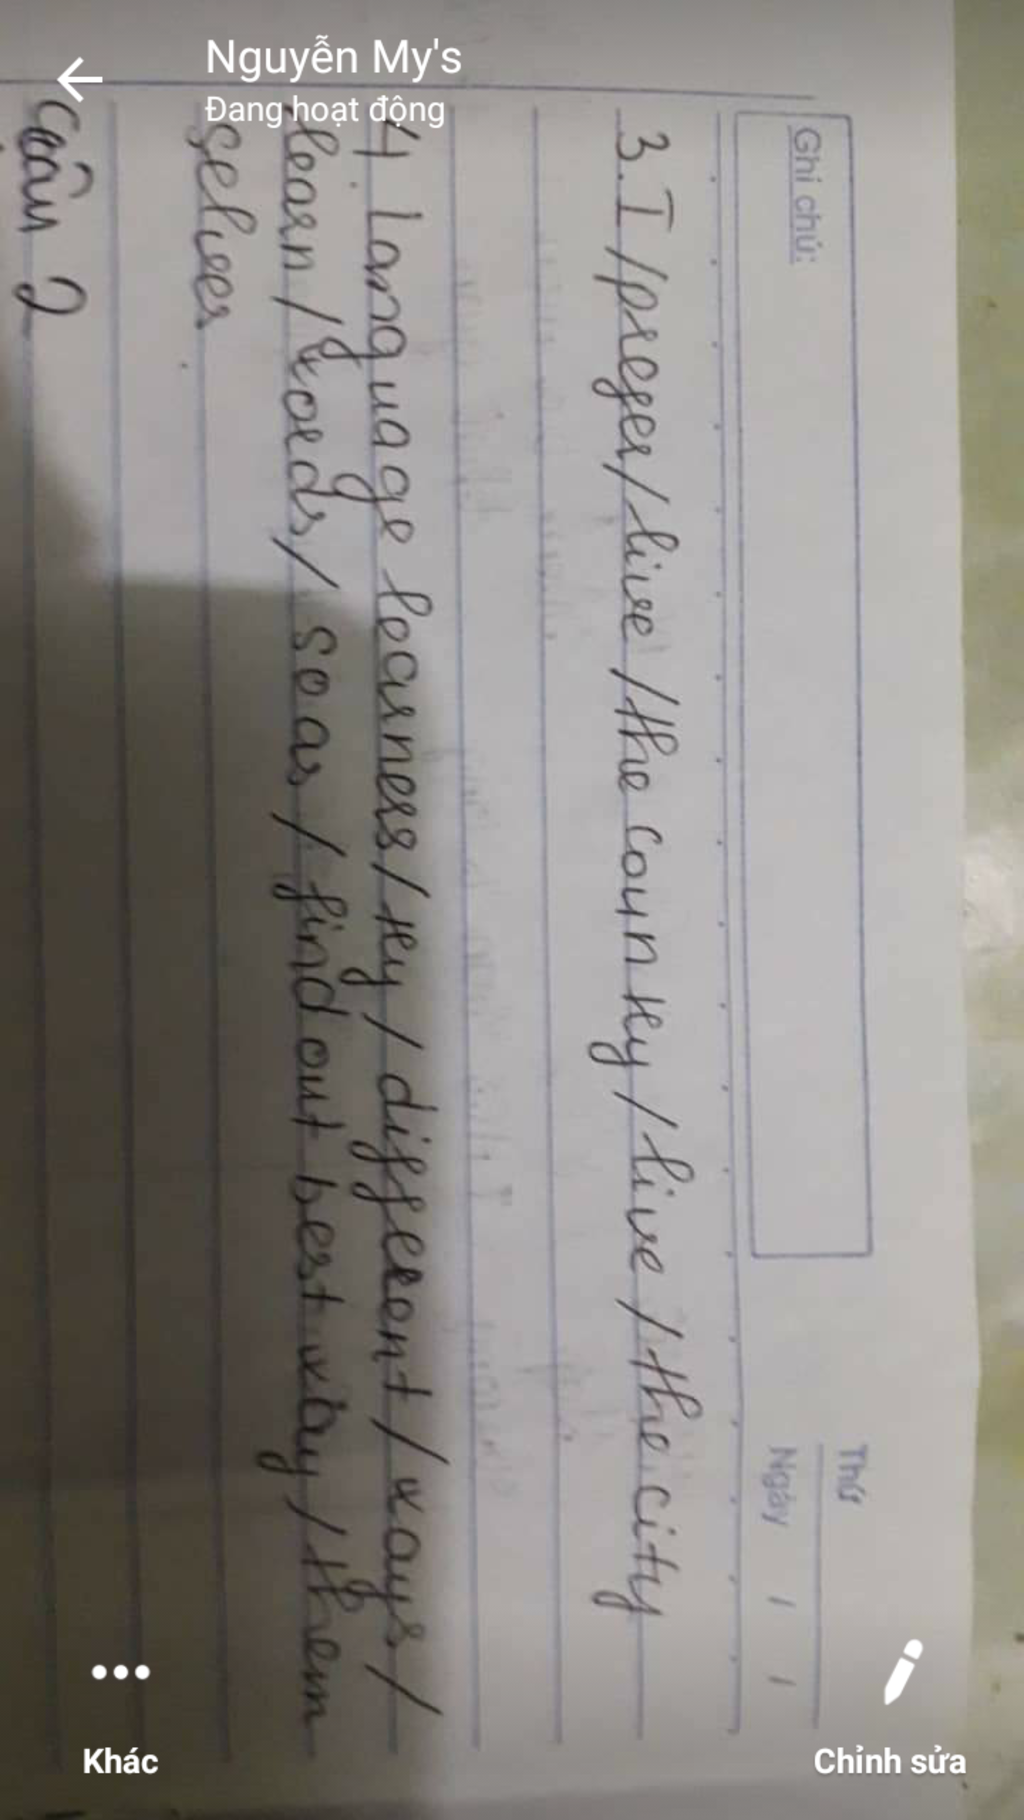 Nguyễn My's
Đang hoạt động
Ghi chú:
Thứ
Ngày / /
3. I / prefer / live / the country / live / the city
4. Language learners / try / different / ways /
learn / words / so as / find out best way / them
selves
Câu 2
Khác
Chỉnh sửa